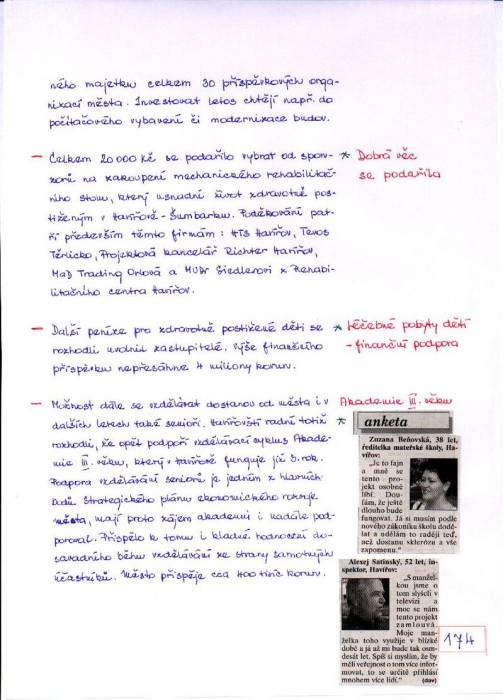 ného majetku celkem 30 příspěvkových orga-
nizací města. Investovat letos chtějí např. do
počítačového vybavení či modernizace budov.
— Celkem 20 000 Kč se podařilo vybrat od spon-
zorů na zakoupení mechanického rehabilitač-
ního stolu, který usnadní život zdravotně pos-
tiženým v Havířově - Šumbarku. Poděkování pat-
ří především těmto firmám: HTS Havířov, Tevos
Těrlicko, Projektová kancelář Richter Havířov,
MaD Trading Orlová a MUDr Siedlerovi z Rehabi-
litačního centra Havířov.
* Dobrá věc
se podařila
— Další peníze pro zdravotně postižené děti se
rozhodli uvolnit zastupitelé. Výše finančního
příspěvku nepřesáhne 4 miliony korun.
* Léčebné pobyty dětí
- finanční podpora
— Možnost dále se vzdělávat dostanou od města i v
dalších letech také senioři. Havířovští radní totiž
rozhodli, že opět podpoří vzdělávací cyklus Akade-
mie III. věku, který v Havířově funguje již 3. rok.
Podpora vzdělávání seniorů je jedním z hlavních
bodů Strategického plánu ekonomického rozvoje
města, mají proto zájem akademii i nadále pod-
porovat. Přispělo k tomu i kladné hodnocení do-
savadního běhu vzdělávání ze strany samotných
účastníků. Město přispěje cca 400 tisíc korun.
Akademie III. věku
*
anketa
Zuzana Beňovská, 38 let,
ředitelka mateřské školy, Ha-
vířov:
„Je to fajn
a mně se
tento pro-
jekt osobně
líbí. Dou-
fám, že ještě
dlouho bude
fungovat. Já si musím podle
nového zákoníku školu dodě-
lat a udělám to raději teď,
než dostanu sklerózu a vše
zapomenu.“
Alexej Satinský, 52 let, in-
spektor, Havířov:
„S manžel-
kou jsme o
tom slyšeli v
televizi a
moc se nám
tento projekt
zamlouvá.
Moje man-
želka toho využije v blízké
době a já až mi bude tak osm-
desát let. Spíš si myslím, že by
měli veřejnost o tom více infor-
movat, to se určitě přihlásí
mnohem více lidí.“ (dav)
174